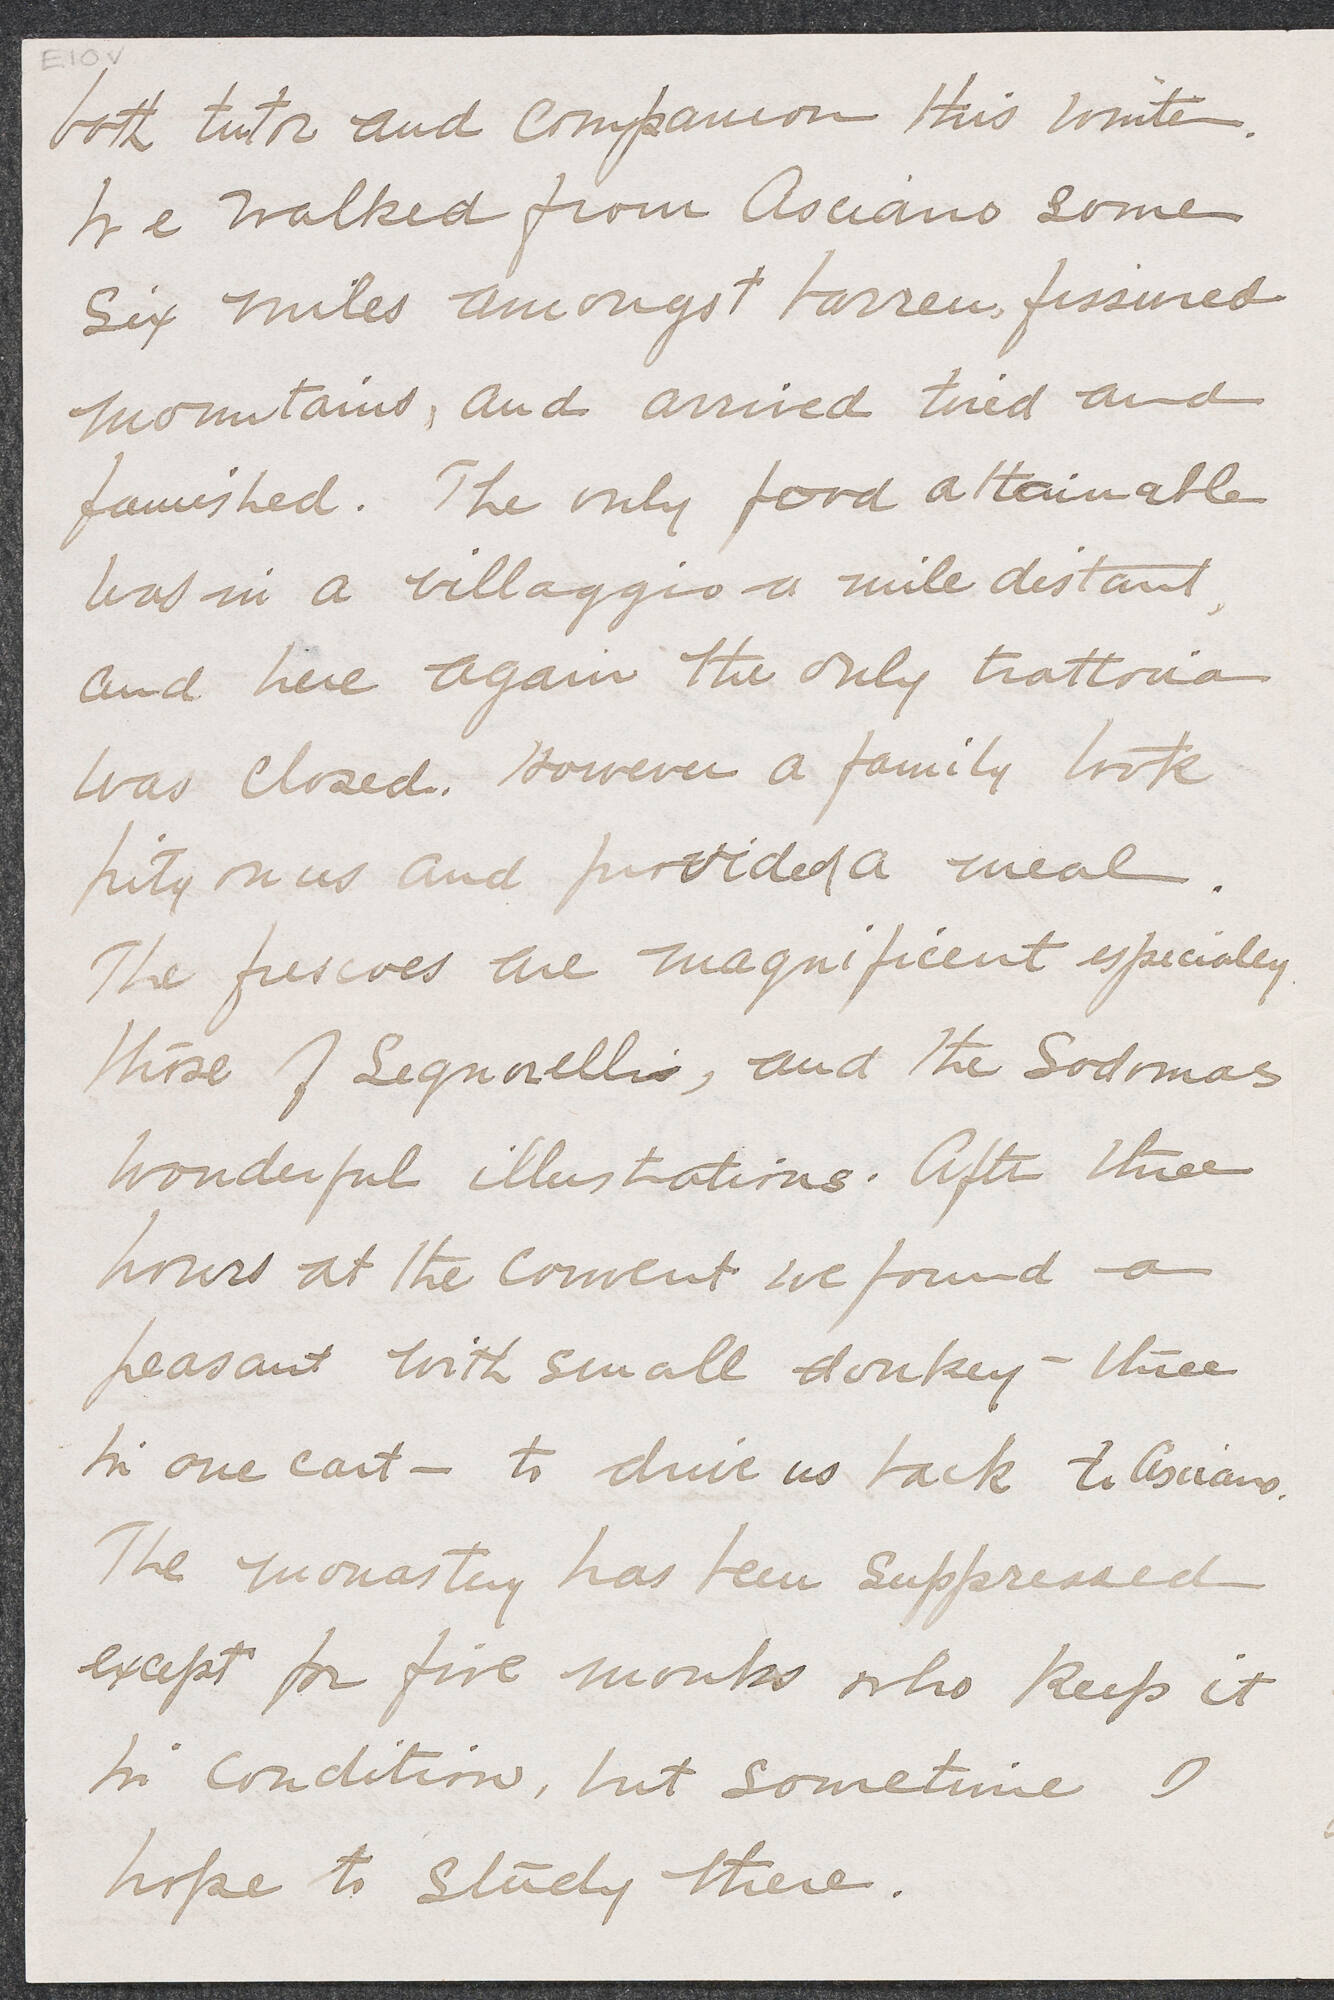 E10V
both tutor and companion this winter.
We walked from Asciano some
six miles amongst barren, fissured
mountains, and arrived tired and
famished. The only food attainable
was in a villaggio a mile distant,
and here again the only trattoria
was closed. However a family took
pity on us and provided a meal.
The frescoes are magnificent especially
those of Segnorellis, and the Sodomas
wonderful illustrations. After three
hours at the convent we found a
peasant with small donkey - three
in one cart - to drive us back to Asciano.
The monastery has been suppressed
except for five monks who keep it
in condition, but sometime I
hope to study there.